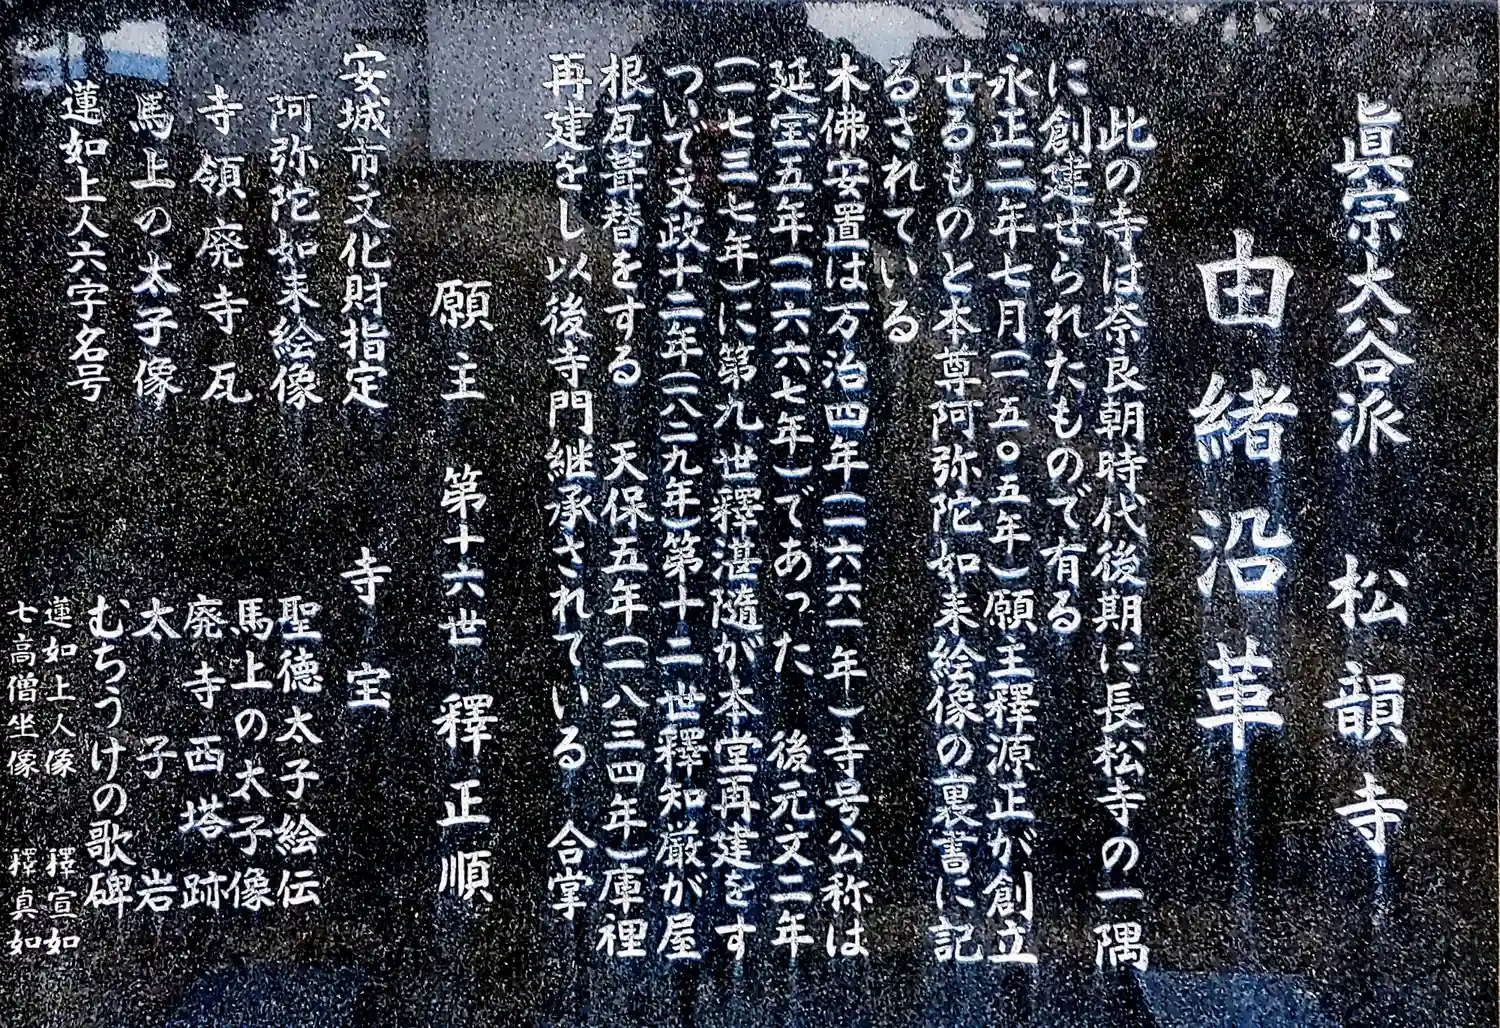 眞宗大谷派　松韻寺
由緒沿革
此の寺は奈良朝時代後期に長松寺の一隅
に創建せられたもので有る
永正二年七月(一五〇五年)願主釋源正が創立
せるものと本尊阿弥陀如来絵像の裏書に記
るされている
木佛安置は万治四年(一六六一年)寺号公称は
延宝五年(一六六七年)であった　後元文二年
(一七三七年)に第九世釋湛随が本堂再建をす
ついで文政十二年(一八二九年)第十二世釋知厳が屋
根瓦葺替をする　天保五年(一八三四年)庫裡
再建をし以後寺門継承されている　合掌
願主　第十六世　釋正順
安城市文化財指定
阿弥陀如来絵像
寺領廃寺瓦
馬上の太子像
蓮如上人六字名号
寺宝
聖徳太子絵伝
馬上の太子像
廃寺西塔跡
太子岩
むちうけの歌碑
蓮如上人像　釋宣如
七高僧坐像　釋真如